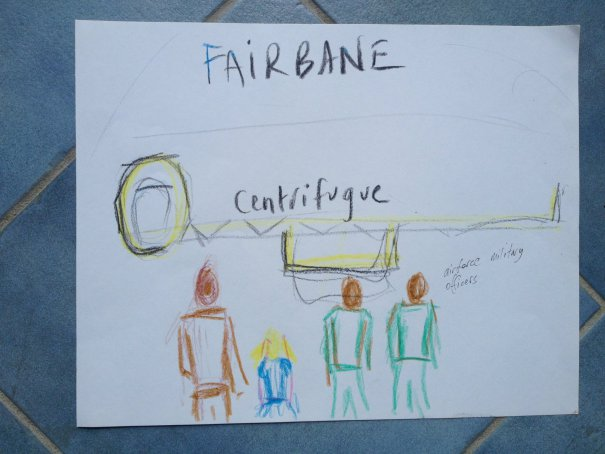 FAIRBANE
Centrifugue
airforce military
officers